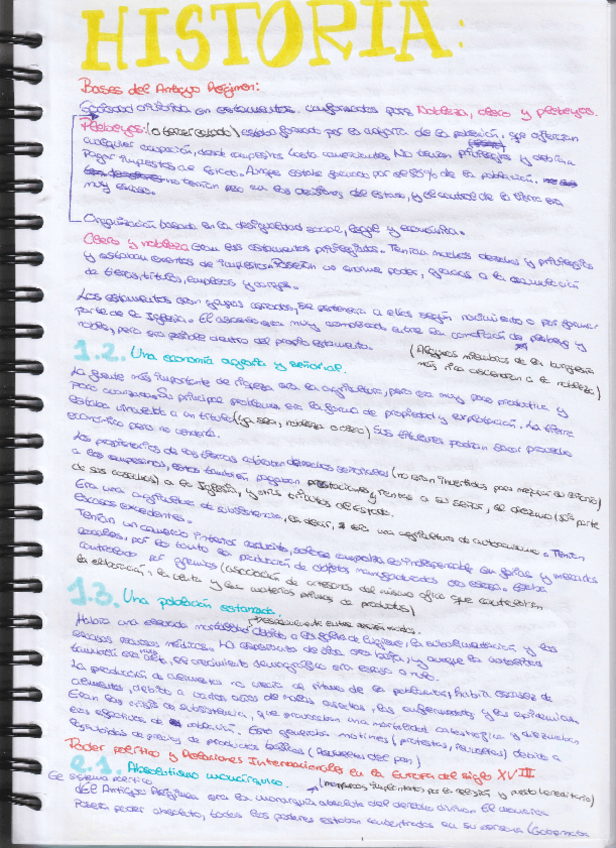 HISTORIA:
Bases del Antiguo Régimen:
Sociedad dividida en estamentos. conformados por: Nobleza, clero y plebeyos.
Plebeyos: (o tercer estado) estaba formado por la mayoría de la población, que ejercían
cualquier ocupación, desde campesinos hasta comerciantes. No tenían privilegios y debían
pagar impuestos al estado. Aunque estaba formado por el 80% de la población.
no tenían peso en las decisiones del estado, y el control de la tierra era
muy escaso.
Organización basada en la desigualdad social, legal y económica.
Clero y nobleza eran los estamentos privilegiados. Tenían muchos derechos y privilegios
y estaban exentos de impuestos. Poseían un enorme poder, gracias a la acumulación
de tierras, títulos, empleos y cargos.
Los estamentos eran grupos cerrados, se pertenecía a ellos según nacimiento o por formar
parte de la Iglesia. El ascenso era muy complicado entre la condición de plebeyo y
noble, pero era posible dentro del propio estamento.
(Algunos miembros de la burguesía
más rica ascendían a la nobleza)
1.2. Una economía agraria y señorial.
La fuente más importante de riqueza era la agricultura, pero era muy poco productiva y
poco avanzada. Su principal problema era la forma de propiedad y explotación. La tierra
estaba vinculada a un título (ya sea, nobleza o clero) Sus titulares podían sacar provecho
económico pero no venderla.
Los propietarios de las tierras cobraban derechos señoriales (no eran invertidos para mejorar su señorío)
a los campesinos, estos también pagaban prestaciones y rentas a su señor, el diezmo (10ª parte
de sus cosechas) a la Iglesia, y otros tributos al Estado.
Era una agricultura de subsistencia, es decir, una agricultura de autoconsumo. Tenían
escasos excedentes.
Tenían un comercio interior reducido, solo se compraba lo indispensable en ferias y mercados
locales, por lo tanto la producción de objetos manufacturados era escasa. Estaba
controlado por gremios (asociación de artesanos del mismo oficio que controlaban
la elaboración, la venta y las materias primas de productos)
1.3. Una población estancada.
Había una elevada mortalidad debido a la falta de higiene, la subalimentación y los
escasos recursos médicos. La esperanza de vida era baja, y aunque la natalidad
también era muy alta, el crecimiento demográfico era escaso o nulo.
La producción de alimentos no crecía al ritmo de la población, había escasez de
alimentos, debido a varios años de malas cosechas, las enfermedades y las epidemias
Eran las crisis de subsistencia, que provocaban una mortalidad catastrófica y diezmaban
los efectivos de población. Esto generaba motines (protestas, revueltas) debido a
las subidas de precio de productos básicos (revueltas del pan)
Poder político y Relaciones Internacionales en la Europa del siglo XVIII
2.1. Absolutismo monárquico.
El sistema político
del Antiguo Régimen era la monarquía absoluta del derecho divino. El monarca
Poseía poder absoluto, todos los poderes estaban concentrados en su persona (Gobernaba